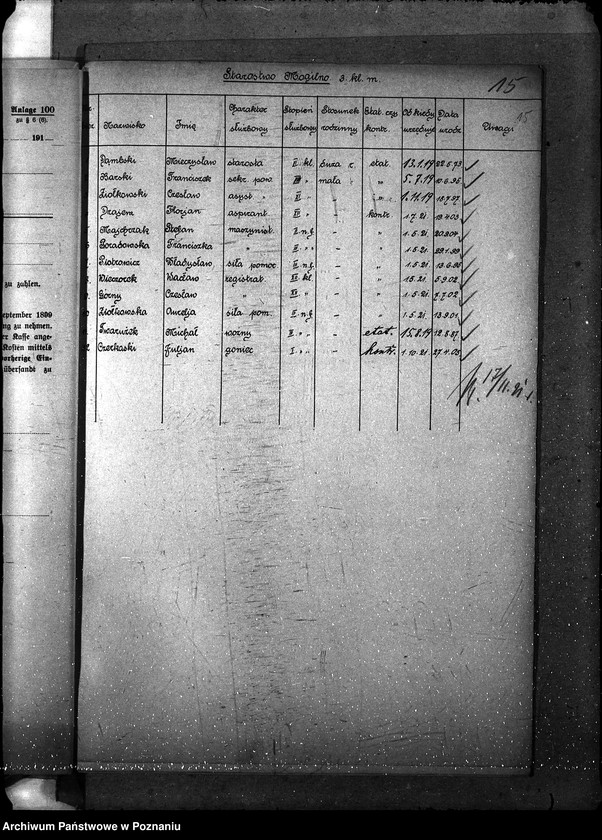 Anlage 100
zu § 6 (6).
191
zu zahlen.
September 1899
ng zu nehmen.
er Kasse ange-
Kosten mittels
vorherige Ein-
übersandt zu
Starostwo Mogilno 3. kl. m.
15
15
Nazwisko Imię Charakter służbowy Stopień służbowy Stosunek rodzinny Stat. czy kontr. Od kiedy urzęduje Data urodz. Uwagi
Dąmbski Mieczysław starosta II. kl. duża r. etat. 13.1.19
Barski Franciszek sekr. pow. " mała " " 5.7.19
Ziółkowski Czesław asyst. " " - " 1.11.19
Florjan aspirant " - kontr. 1.7.21 19.4.03
Majchrzak Stefan maszynist. - " 1.5.21
Franciszka " - " 1.5.21
Piotrowicz Władysław siła pomoc. - " 1.5.21
Wieczorek Wacław registrat. kl. - " 5.9.02
Górny Czesław " " - " 1.5.21 7.7.02
Ziółkowska Aurelja siła pom. - " 1.5.21 13.9.01
Twarużek Michał woźny " - etat. 15.8.19
Czerkaski Juljan goniec I. " - kontr. 1.10.21
17/11. 21
Archiwum Państwowe w Poznaniu